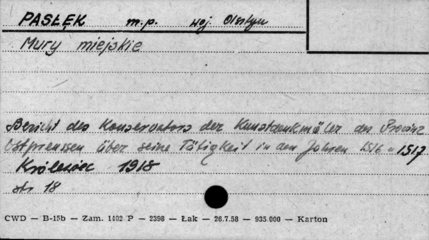 PASŁĘK m.p. woj. Olsztyn
Mury miejskie
Bericht des Konservators der Kunstdenkmäler der Provinz
Ostpreussen über seine Tätigkeit in den Jahren 1916 - 1917
Królewiec 1918
str 18
CWD — B-15b — Zam. 1402 P — 2398 — Łak — 26.7.58 — 935.000 — Karton